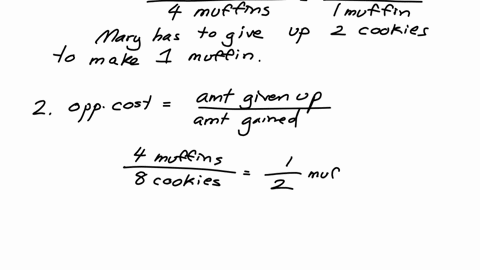 4 muffins 1 muffin
Mary has to give up 2 cookies
to make 1 muffin.
2. opp. cost = amt given up / amt gained
4 muffins / 8 cookies = 1 / 2 muf